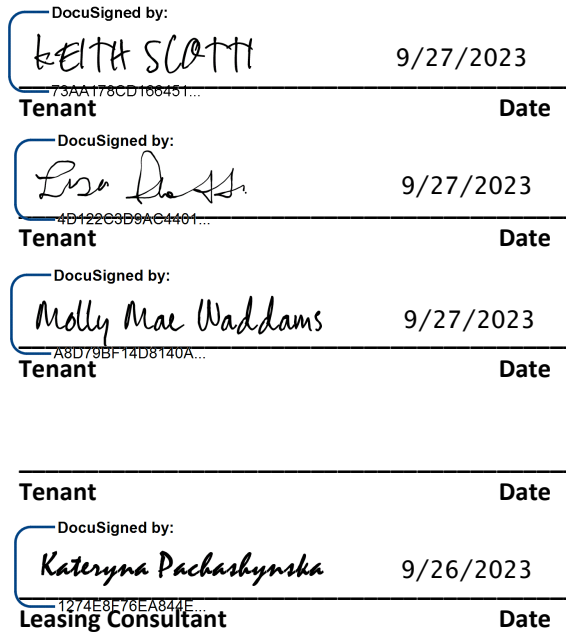 DocuSigned by:
KEITH SCOTT 9/27/2023
73AA178CD166451...
Tenant Date
DocuSigned by:
Lisa 9/27/2023
4D122C3D9AC4401...
Tenant Date
DocuSigned by:
Molly Mae Waddams 9/27/2023
A8D79BF14D8140A...
Tenant Date
Tenant Date
DocuSigned by:
Kateryna Pachashynska 9/26/2023
1274E8F76EA844E...
Leasing Consultant Date